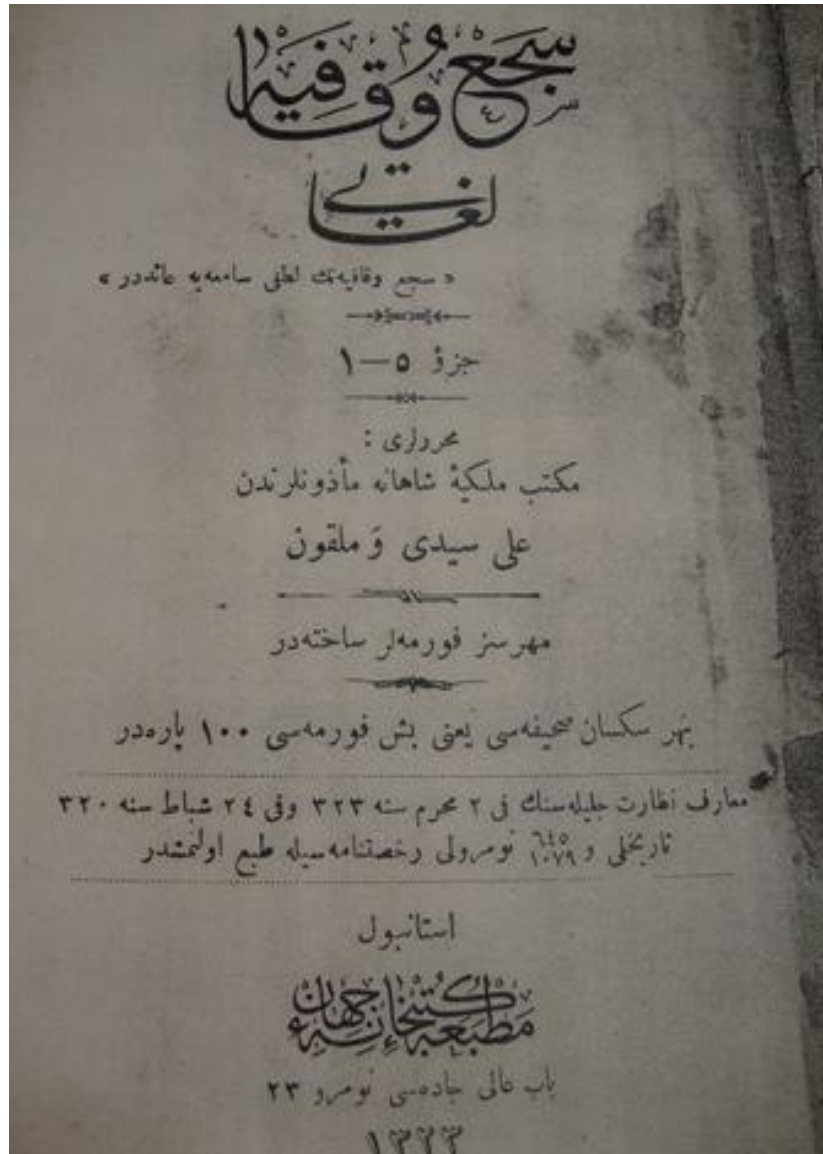 سجع وقافیه
لغاتی
« سجع وقافیه‌نك لطفی سامعه‌یه عائددر »
جزؤ ٥—١
محررلری :
مکتب ملکیهٔ شاهانه مأذونلرندن
علی سیدی وَ ملقون
مهرسز فورمه‌لر ساخته‌در
بهر سکسان صحیفه‌سی یعنی بش فورمه‌سی ١٠٠ پاره‌در
معارف نظارت جلیله‌سنك فی ٢ محرم سنه ٣٢٣ وفی ٢٤ شباط سنه ٣٢٠
تاریخلی و ٦٤٥/١٠٧٩ نومرولی رخصتنامه‌سیله طبع اولنمشدر
استانبول
مطبعهٔ کتبخانهٔ جهان
باب عالی جاده‌سی نومرو ٢٣
١٣٢٣